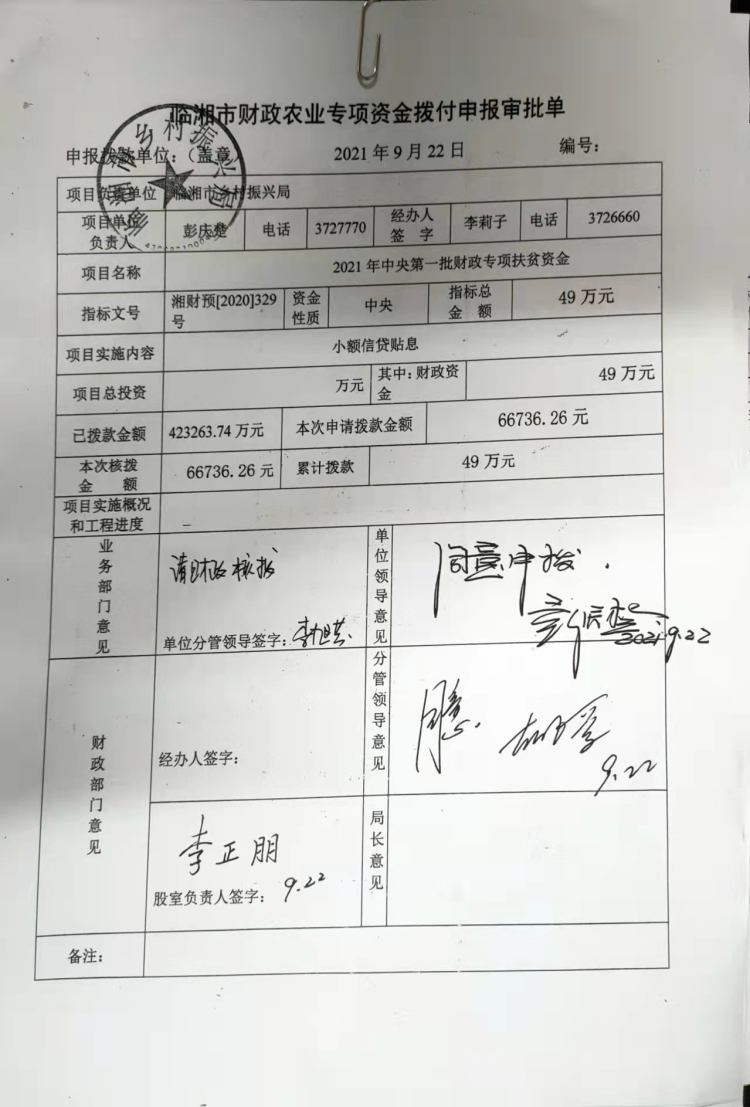 临湘市财政农业专项资金拨付申报审批单
申报拨款单位:（盖章） 2021年9月22日 编号:
项目负责单位 临湘市乡村振兴局
项目单位负责人 彭庆楚 电话 3727770 经办人签字 李莉子 电话 3726660
项目名称 2021年中央第一批财政专项扶贫资金
指标文号 湘财预[2020]329号 资金性质 中央 指标总金额 49万元
项目实施内容 小额信贷贴息
项目总投资 万元 其中:财政资金 49万元
已拨款金额 423263.74万元 本次申请拨款金额 66736.26元
本次核拨金额 66736.26元 累计拨款 49万元
项目实施概况和工程进度 –
业务部门意见 请财政核拨
单位分管领导签字:
单位领导意见 同意申拨.
2021.9.22
财政部门意见
经办人签字:
分管领导意见 同意.
9.22
李正朋
股室负责人签字: 9.22
局长意见
备注: